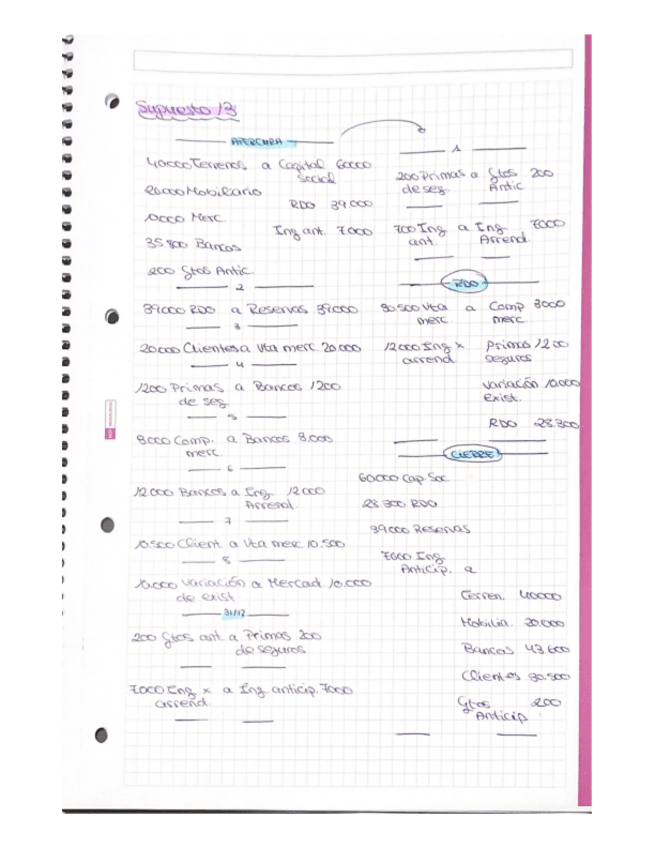 Supuesto 13
APERTURA
40000 Terrenos a Capital 60000
Social
20000 Mobiliario
RDO 39000
10000 Merc.
Ing ant. 7000
35800 Bancos
200 Gtos Antic.
2
39000 RDO a Reservas 39000
3
20000 Clientes a Vta merc. 20.000
4
1200 Primas a Bancos 1200
de seg.
5
3000 Comp. a Bancos 3.000
merc.
6
12000 Bancos a Ing. 12000
Arrend.
7
10.500 Client. a Vta merc 10.500
8
10.000 Variación a Mercad. 10.000
de exist.
31/12
200 Gtos ant. a Primas 200
de seguros
7000 Ing x a Ing anticip. 7000
arrend.
1
200 Primas a Gtos 200
de seg. Antic
700 Ing a Ing. 7000
ant. Arrend.
RDO
30 500 Vta a Comp 3000
merc merc.
12000 Ing x Primas 1200
arrend seguros
Variación 10.000
exist.
RDO 28.300
CIERRE
60000 Cap Soc.
28 300 RDO
39000 Reservas
7000 Ing
Anticip. a
Terren. 40000
Mobilia. 20.000
Bancos 43 600
Clientes 30.500
Gtos 200
Anticip